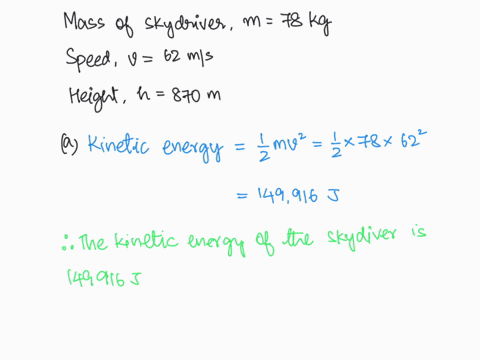 Mass of skydriver, m = 78 kg
Speed, v = 62 m/s
Height, h = 870 m
(a) Kinetic energy = 1/2 mv² = 1/2 × 78 × 62²
= 149,916 J
∴ The kinetic energy of the skydiver is
149,916 J